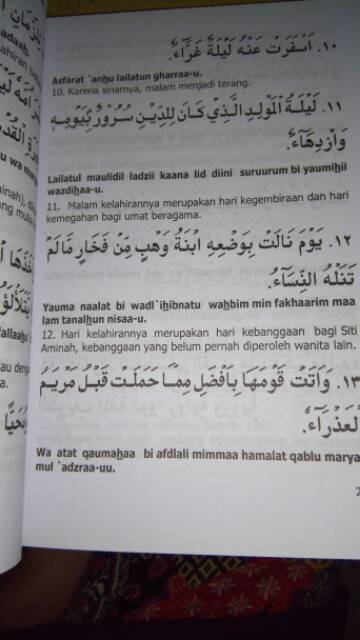 ١٠. اَسْفَرَتْ عَنْهُ لَيْلَةٌ غَرَّاءُ.
Asfarat `anhu lailatun gharraa-u.
10. Karena sinarnya, malam menjadi terang.
١١. لَيْلَةُ الْمَوْلِدِ الَّذِي كَانَ لِلدِّيْنِ سُرُوْرٌ بِيَوْمِهِ
وَازْدِهَاءُ.
Lailatul maulidil ladzii kaana lid diini suruurum bi yaumihii
wazdihaa-u.
11. Malam kelahirannya merupakan hari kegembiraan dan hari
kemegahan bagi umat beragama.
١٢. يَوْمَ نَالَتْ بِوَضْعِهِ ابْنَةُ وَهْبٍ مِّنْ فَخَارٍ مَّالَمْ
تَنَلْهُ النِّسَاءُ.
Yauma naalat bi wadl`ihibnatu wahbim min fakhaarim maa
lam tanalhun nisaa-u.
12. Hari kelahirannya merupakan hari kebanggaan bagi Siti
Aminah, kebanggaan yang belum pernah diperoleh wanita lain.
١٣. وَاَتَتْ قَوْمَهَا بِاَفْضَلَ مِمَّا حَمَلَتْ قَبْلُ مَرْيَمُ
الْعَذْرَاءُ.
Wa atat qaumahaa bi afdlali mimmaa hamalat qablu marya
mul `adzraa-uu.